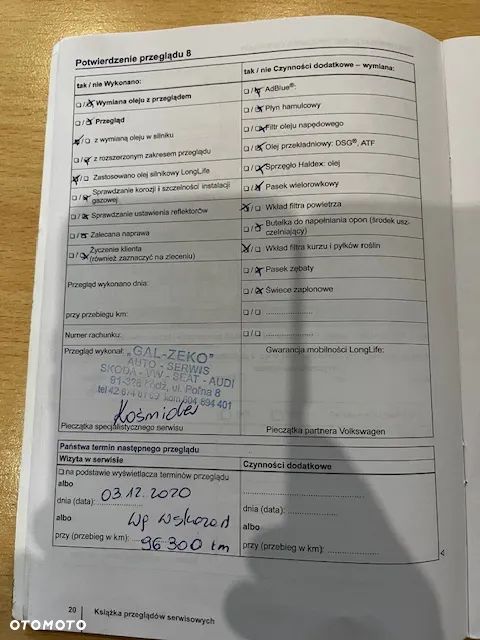 Potwierdzenie przeglądu 8
tak / nie Wykonano:
tak / nie Czynności dodatkowe – wymiana:
□ / □ Wymiana oleju z przeglądem
□ / □ AdBlue®:
□ / □ Przegląd
□ / □ Płyn hamulcowy
□ / □ z wymianą oleju w silniku
□ / □ Filtr oleju napędowego
□ / □ z rozszerzonym zakresem przeglądu
□ / □ Olej przekładniowy: DSG®, ATF
□ / □ Zastosowano olej silnikowy LongLife
□ / □ Sprzęgło Haldex: olej
□ / □ Sprawdzanie korozji i szczelności instalacji
gazowej
□ / □ Pasek wielorowkowy
□ / □ Sprawdzanie ustawienia reflektorów
□ / □ Wkład filtra powietrza
□ / □ Zalecana naprawa
□ / □ Butelka do napełniania opon (środek usz-
czelniający)
□ / □ Życzenie klienta
(również zaznaczyć na zleceniu)
□ / □ Wkład filtra kurzu i pyłków roślin
□ / □ Pasek zębaty
Przegląd wykonano dnia:
□ / □ Świece zapłonowe
przy przebiegu km:
□ / □ ....................
Numer rachunku:
□ / □ ....................
Przegląd wykonał:
Gwarancja mobilności LongLife:
„GAL-ZEKO"
AUTO - SERWIS
SKODA - VW - SEAT - AUDI
91-328 Łódź, ul. Polna 8
kom. 604 694 401
Pieczątka specjalistycznego serwisu
Pieczątka partnera Volkswagen
Państwa termin następnego przeglądu
Wizyta w serwisie
Czynności dodatkowe
□ na podstawie wyświetlacza terminów przeglądu
albo
dnia (data): 03.12.2020
dnia (data): ....................
albo
albo
przy (przebieg w km): 96 300 km
przy (przebieg w km): ....................
20
Książka przeglądów serwisowych
OTOMOTO